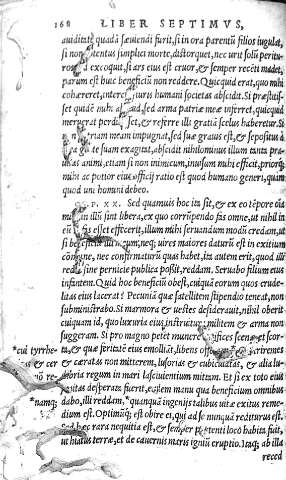 168 LIBER SEPTIMVS,
auiditate quadā sæuiendi furit, si in ora parentū filios iugulat,
si non contentus simplici morte, distorquet, nec urit solū perituros,
sed excoquit, si ars eius est cruor, & semper recēti madet,
parum est huic beneficiū non reddere. Quicquid erat, quo mihi
cohæreret, intercisa iuris humani societas abscidit. Si præstitisset
quidē mihi aliquid, sed arma patriæ meæ inferret, quicquid
meruerat perdidisset, & referre illi gratiā scelus haberetur. Si
non patriam meam impugnat, sed suæ grauis est, & sepositus à
mea gente suam exagitat, abscidit nihilominus illum tanta prauitas
animi, etiam si non inimicum, inuisum mihi efficit, priorq;
mihi ac potior eius officij ratio est quod humano generi, quam
quod uni homini debeo.
CAP. XX. Sed quamuis hoc ita sit, & ex eo tēpore omnia
mihi in illū sint libera, ex quo corrūpendo fas omne, ut nihil in
eū nefas esset effecerit, illum mihi seruandum modū credam, ut
si beneficiū illi meum, neq; uires maiores daturū est in exitium
commune, nec confirmaturū quas habet, id autem erit, quod illi
reddi sine pernicie publica possit, reddam. Seruabo filium eius
infantem. Quid hoc beneficiū obest, cuiquā eorum quos crudelitas
eius lacerat? Pecuniā quæ satellitem stipendio teneat, non
subministrabo. Si marmora & uestes desiderauit, nihil oberit
cuiquam id, quo luxuria eius instruitur, militem & arma non
suggeram. Si pro magno petet munere artifices scenæ, et scorta,
& quæ feritatē eius emolliāt, libens offeram. Cui triremes
& æratas non mitterem, lusorias & cubiculatas, & alia ludibria
regum in mari lasciuientium mittam. Et si ex toto eius
sanitas desperata fuerit, eadem manu qua beneficium omnibus
dabo, illi reddam, *quanquā ingenijs talibus uitæ exitus remedium
est. Optimūq; est abire ei, qui ad se nunquā rediturus est.
Sed hæc rara nequitia est, & semper portenti loco habita fuit,
ut hiatus terræ, et de cauernis maris igniū eruptio. Itaq; ab illa
reced
*cui tyrrhe
& cer
*namq;